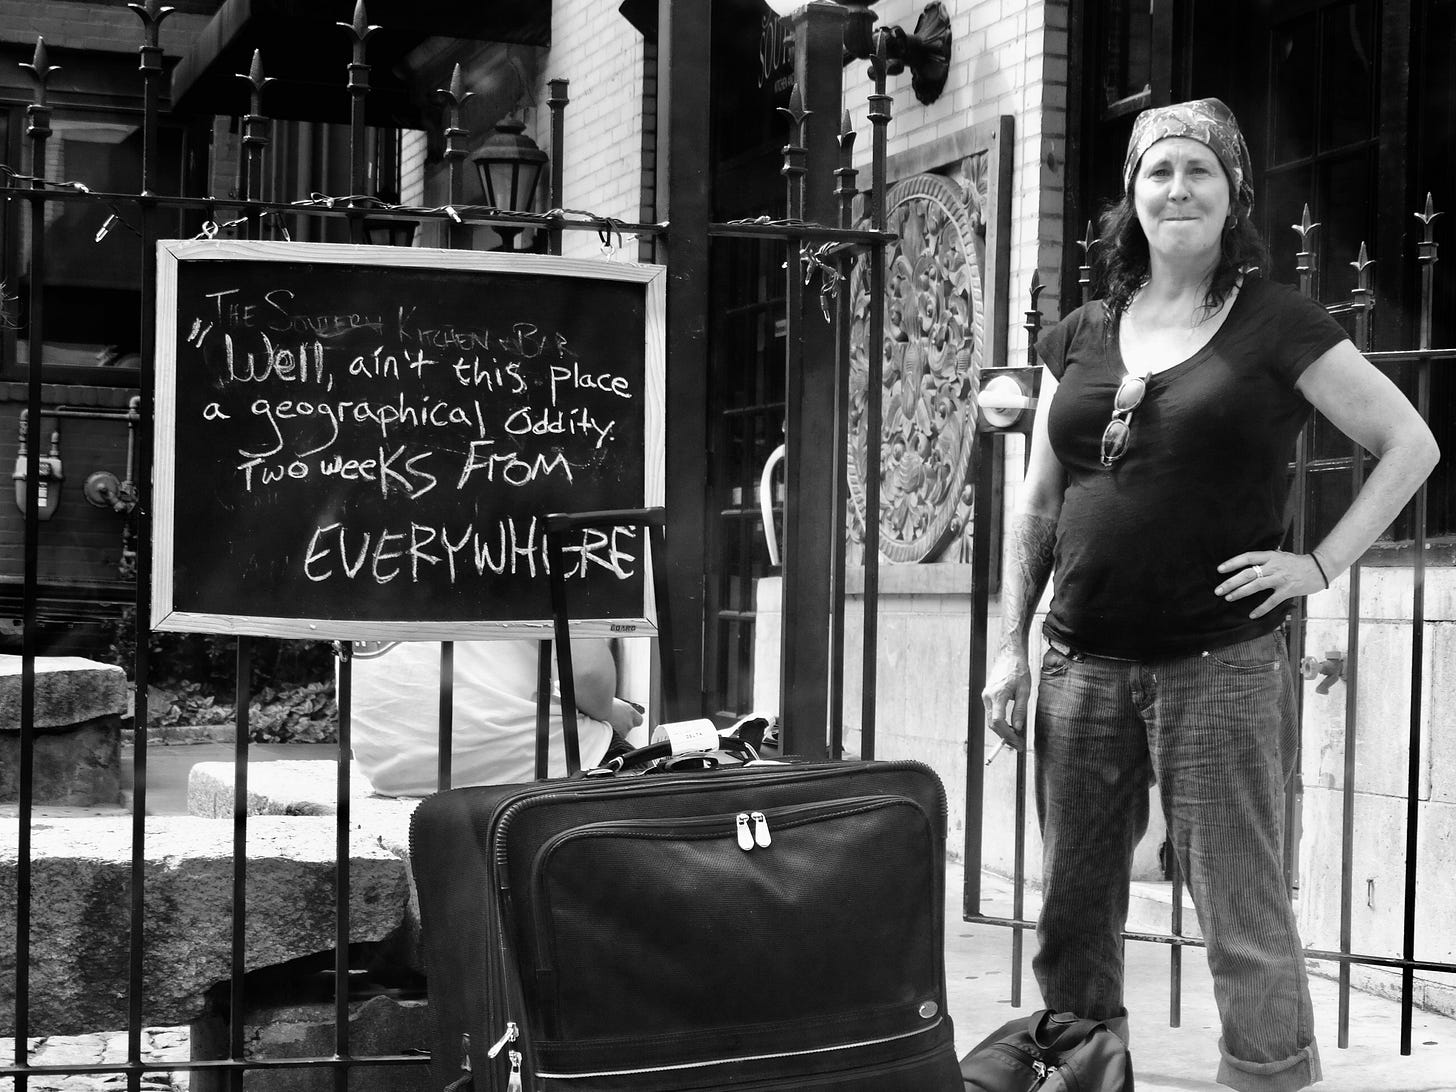 THE SOUTHERN KITCHEN & BAR
"Well, ain't this place
a geographical Oddity.
Two weeKS FrOM
EVERYWHERE
BOARD
DELTA